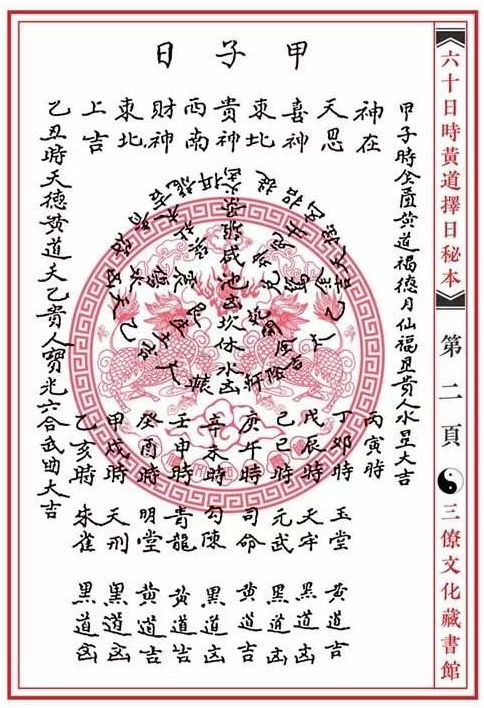 《六十日時黃道擇日秘本》
第二頁
三僚文化藏書館
甲子日
甲子時金匱黃道福德月仙福星貴人水星大吉
神在
天恩
喜神
東北
貴神
西南
財神
東北
上吉
乙丑時天德黃道天乙貴人寶光六合武曲大吉
咸池凶坎休水凶
丙寅時
丁卯時 玉堂 黃道吉
戊辰時 天牢 黑道凶
己巳時 元武 黑道凶
庚午時 司命 黃道吉
辛未時 勾陳 黑道凶
壬申時 青龍 黃道吉
癸酉時 明堂 黃道吉
甲戌時 天刑 黑道凶
乙亥時 朱雀 黑道凶